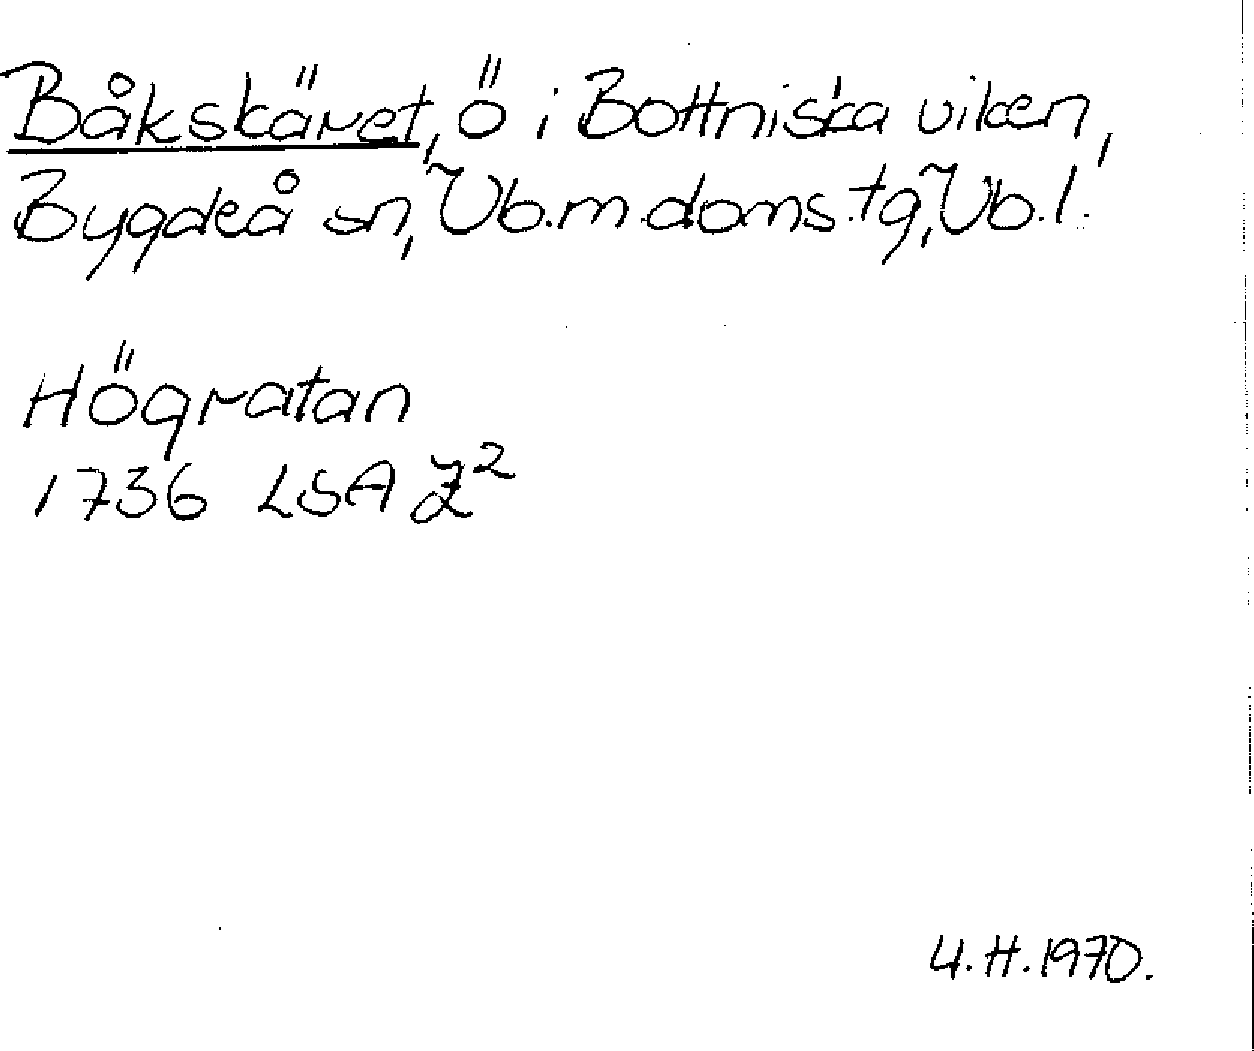 Båkskäret, ö i Bottniska viken,
Bygdeå sn, Vb.m.doms.tg, Vb.l.
Högratan
1736 LSA Z²
U.H.1970.